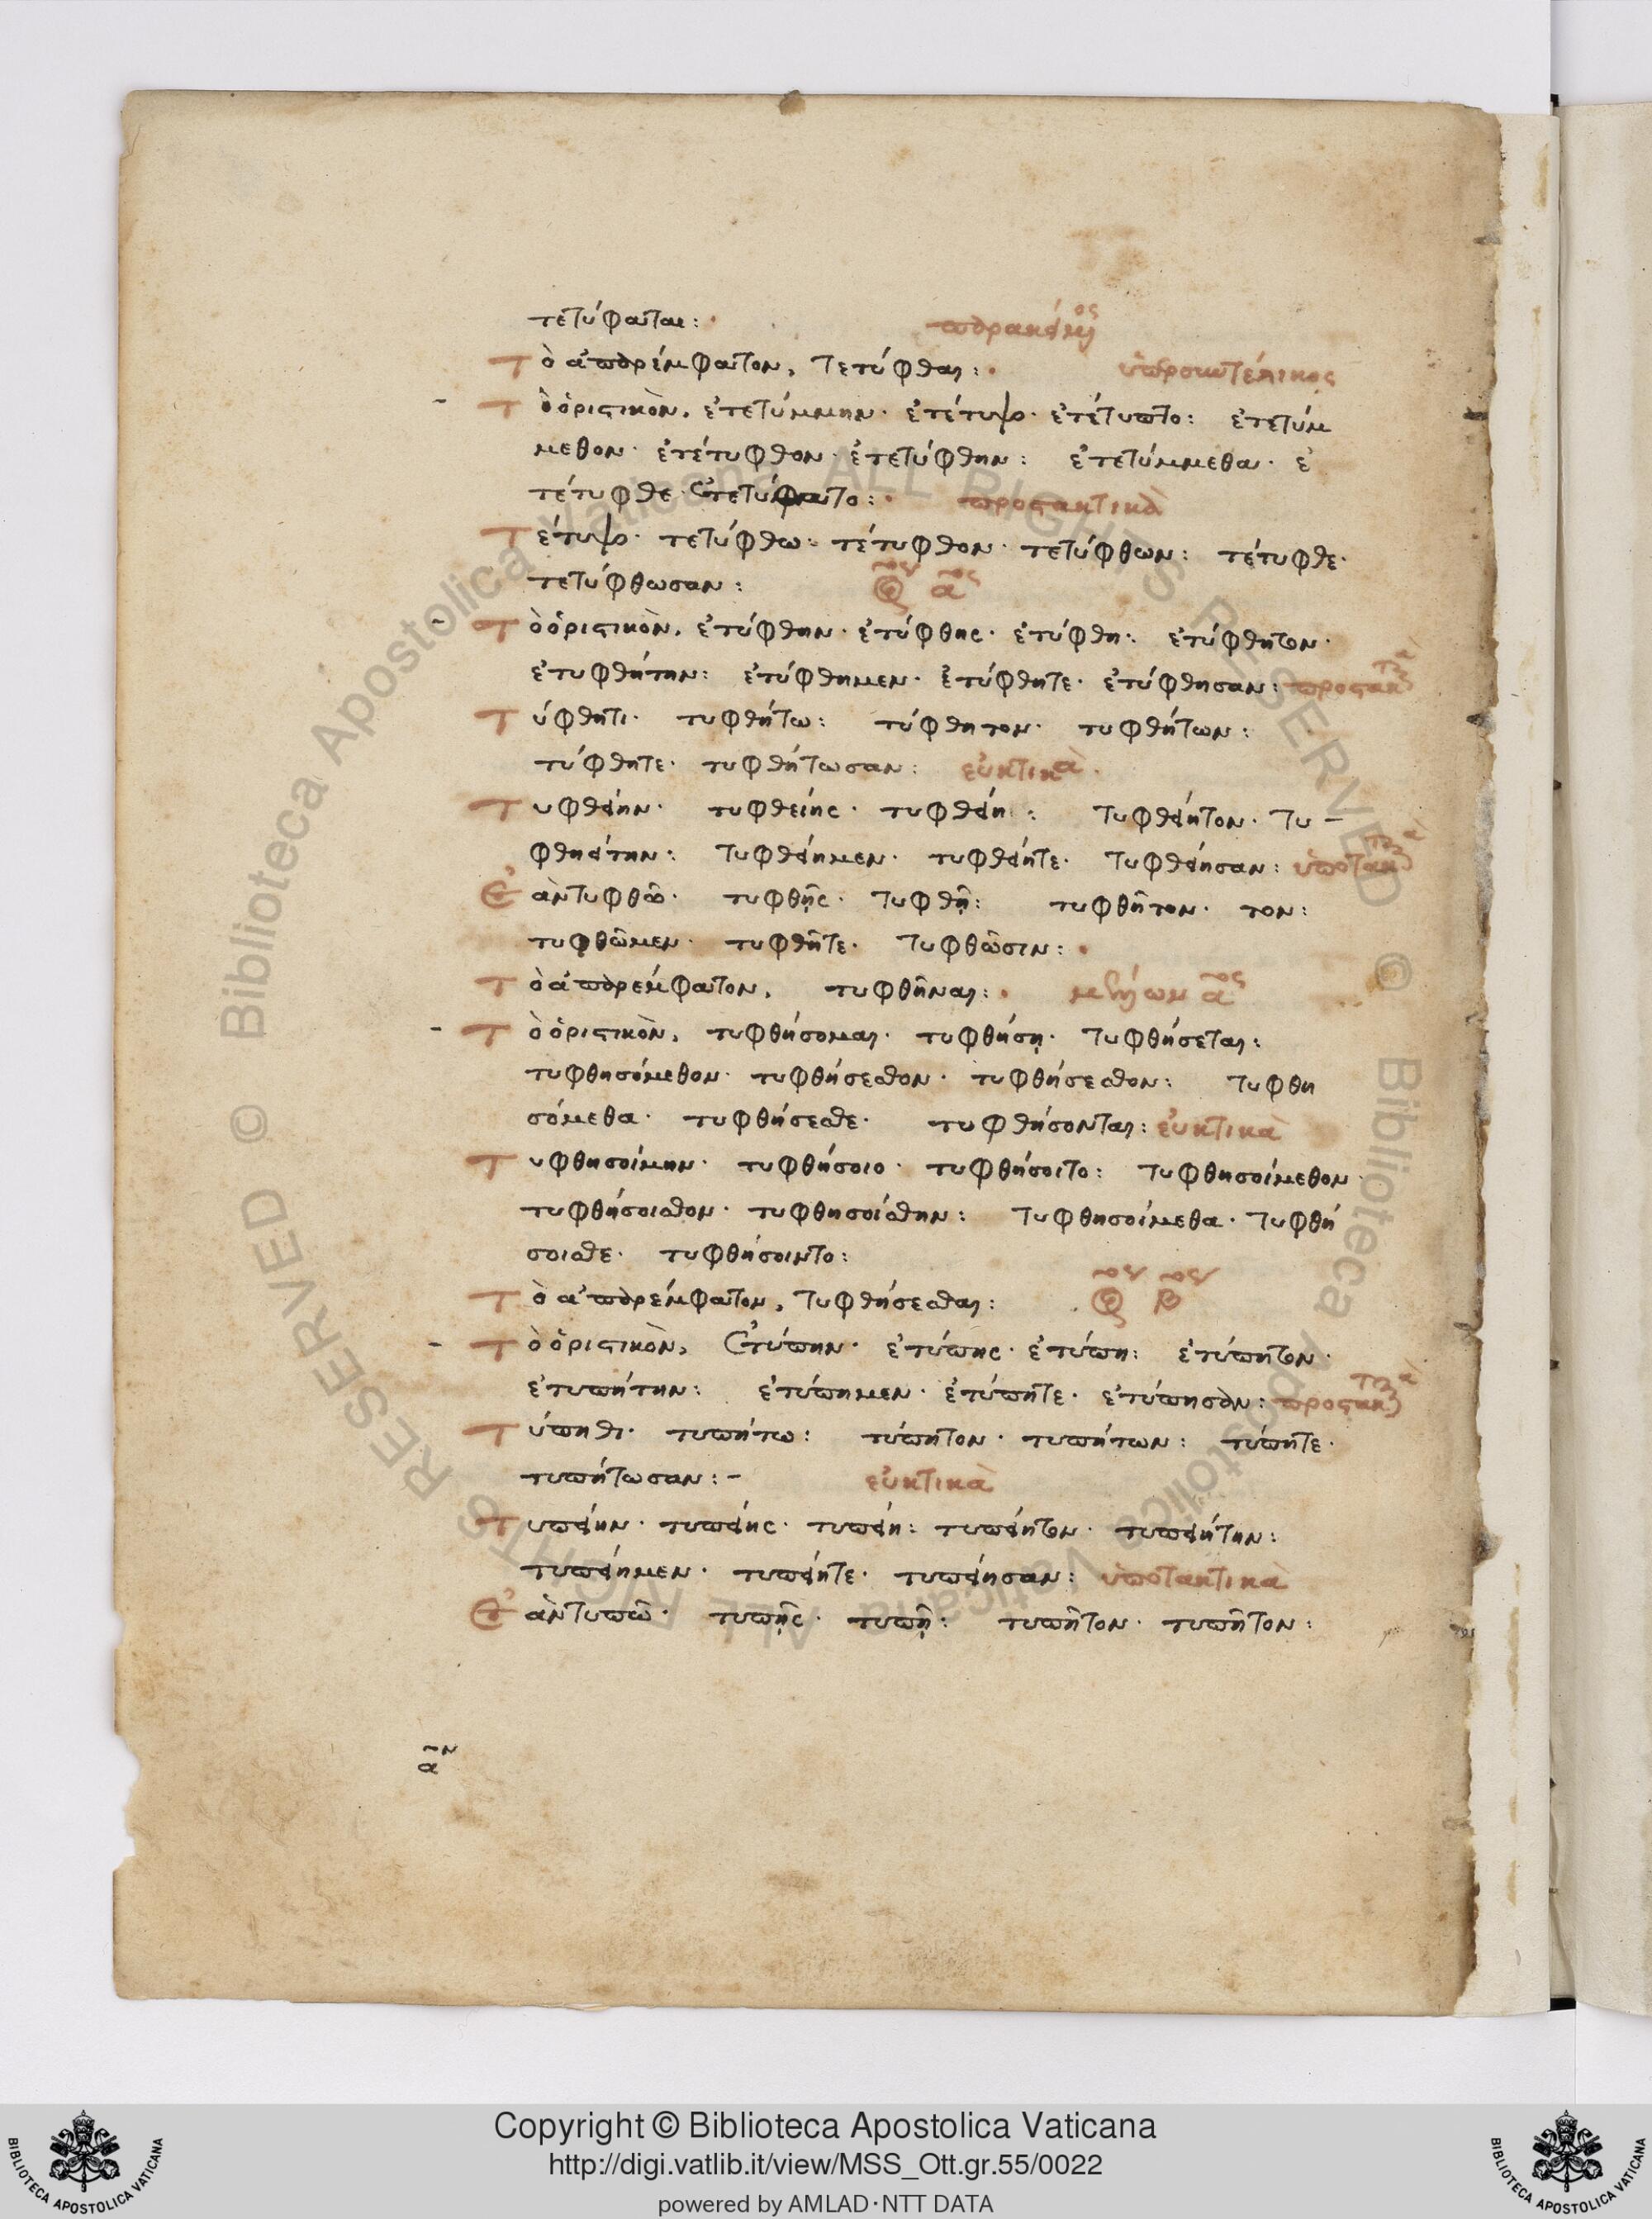 τετύφαται: παρακείμενος
Τὸ ἀπαρέμφατον, τετύφθαι: ὑπερσυντέλικος
Τὸ ὁριστικὸν, ἐτετύμμην· ἐτέτυψο· ἐτέτυπτο: ἐτετύμ
μεθον· ἐτέτυφθον· ἐτετύφθην: ἐτετύμμεθα· ἐ
τέτυφθε· ἐτετύφατο: προστακτικὰ
Τέτυψο· τετύφθω: τέτυφθον· τετύφθων: τέτυφθε·
τετύφθωσαν: αος
Τὸ ὁριστικὸν, ἐτύφθην· ἐτύφθης· ἐτύφθη: ἐτύφθητον·
ἐτυφθήτην: ἐτύφθημεν· ἐτύφθητε· ἐτύφθησαν: προστακτικὰ
Τύφθητι· τυφθήτω: τύφθητον· τυφθήτων:
τύφθητε· τυφθήτωσαν: εὐκτικὰ·
Τυφθείην· τυφθείης· τυφθείη: τυφθείητον· τυ–
φθηείτην: τυφθείημεν· τυφθείητε· τυφθείησαν: ὑποτακτικὰ
Ἐὰν τυφθῶ· τυφθῇς· τυφθῇ: τυφθῆτον· τον:
τυφθῶμεν· τυφθῆτε· τυφθῶσιν:
Τὸ ἀπαρέμφατον, τυφθῆναι: μέλλων αος
Τὸ ὁριστικὸν, τυφθήσομαι· τυφθήσῃ· τυφθήσεται:
τυφθησόμεθον· τυφθήσεσθον· τυφθήσεσθον: τυφθη
σόμεθα· τυφθήσεσθε· τυφθήσονται: εὐκτικὰ
Τυφθησοίμην· τυφθήσοιο· τυφθήσοιτο: τυφθησοίμεθον·
τυφθήσοισθον· τυφθησοίσθην: τυφθησοίμεθα· τυφθή
σοισθε· τυφθήσοιντο:
Τὸ ἀπαρέμφατον, τυφθήσεσθαι: βος
Τὸ ὁριστικὸν, ἐτύπην· ἐτύπης· ἐτύπη: ἐτύπητον·
ἐτυπήτην: ἐτύπημεν· ἐτύπητε· ἐτύπησαν: προστακτικὰ
Τύπηθι· τυπήτω: τύπητον· τυπήτων: τύπητε·
τυπήτωσαν:– εὐκτικὰ
Τυπείην· τυπείης· τυπείη: τυπείητον· τυπειήτην:
τυπείημεν· τυπείητε· τυπείησαν: ὑποτακτικὰ
Ἐὰν τυπῶ· τυπῇς· τυπῇ: τυπῆτον· τυπῆτον:
Copyright © Biblioteca Apostolica Vaticana
http://digi.vatlib.it/view/MSS_Ott.gr.55/0022
powered by AMLAD·NTT DATA